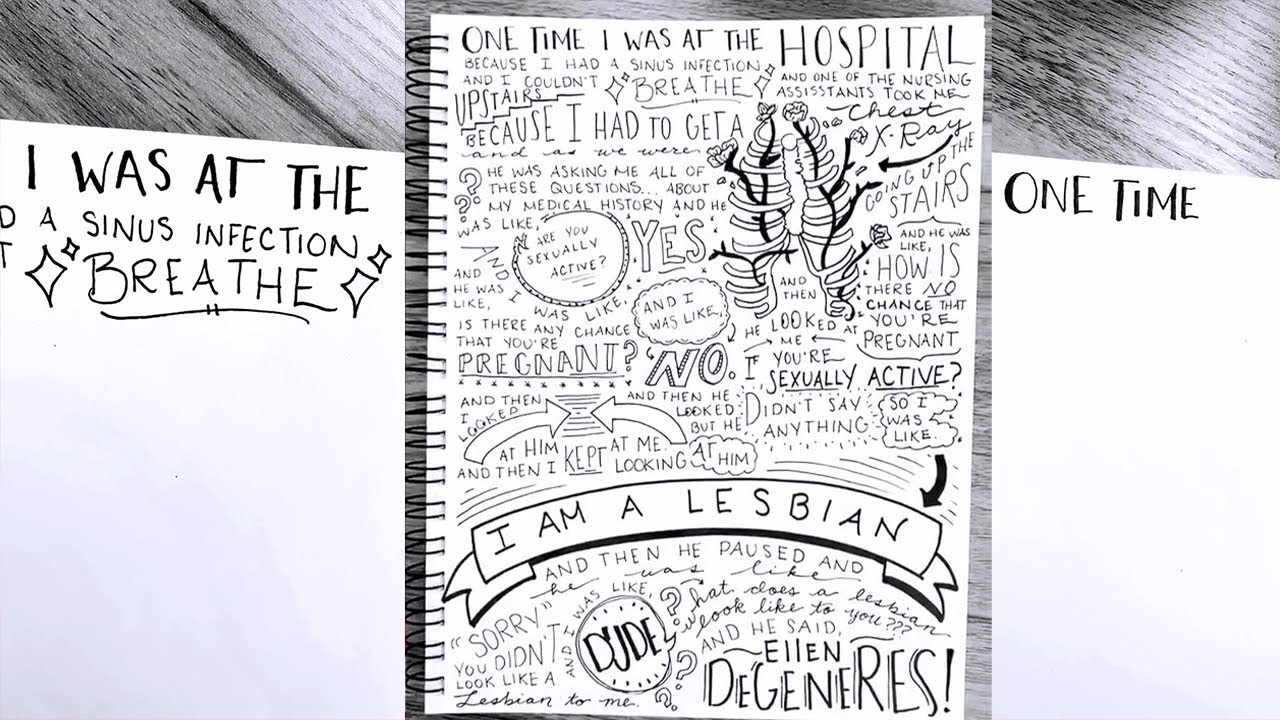 I WAS AT THE
D A SINUS INFECTION
T BREATHE
ONE TIME I WAS AT THE HOSPITAL
BECAUSE I HAD A SINUS INFECTION
AND I COULDN'T BREATHE
AND ONE OF THE NURSING
ASSISSTANTS TOOK ME
UPSTAIRS
BECAUSE I HAD TO GET A
chest
X-Ray
and as we were
GOING UP THE
STAIRS
HE WAS ASKING ME ALL OF
THESE QUESTIONS... ABOUT
MY MEDICAL HISTORY AND HE
WAS LIKE,
ARE YOU
SEXUALLY
ACTIVE?
AND I WAS LIKE,
YES
AND
HE WAS
LIKE,
IS THERE ANY CHANCE
THAT YOU'RE
PREGNANT?
AND I
WAS LIKE,
NO.
AND HE WAS
LIKE,
HOW IS
THERE NO
CHANCE THAT
YOU'RE
PREGNANT
IF YOU'RE
SEXUALLY ACTIVE?
AND
THEN
HE LOOKED AT
ME
AND THEN
I
LOOKED
AT HIM
AND THEN HE
LOOKED
AT ME
BUT HE DIDN'T SAY
ANYTHING
AND THEN I KEPT LOOKING AT HIM
SO I
WAS
LIKE.
I AM A LESBIAN
AND THEN HE PAUSED AND
he was like
"SORRY"
YOU DIDN'T
LOOK LIKE A
Lesbian to me.
AND I WAS LIKE,
DUDE
what does a lesbian
look like to you???
AND HE SAID,
ELLEN
DEGENERES!
ONE TIME